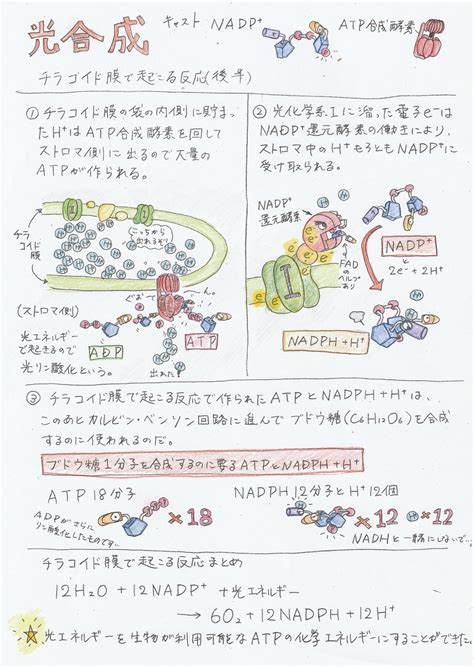 光合成
キャスト NADP⁺
ATP合成酵素
チラコイド膜で起こる反応(後半)
① チラコイド膜の袋の内側に貯まっ
たH⁺はATP合成酵素を回して
ストロマ側に出るので大量の
ATPが作られる。
チラ
コイド
膜
こっちから
出れるぞ
H⁺
ぐぉー
ん。
(ストロマ側)
光エネルギー
で起きるので
光リン酸化という。
ADP
ATP
出れた!
② 光化学系Ⅰに溜った電子e⁻は
NADP⁺還元酵素の働きにより、
ストロマ中のH⁺もろともNADP⁺に
受け取られる。
NADP⁺
還元酵素
FADの
ヘルプ
あり
Ⅰ
e⁻
NADP⁺
2e⁻+2H⁺
NADPH+H⁺
③ チラコイド膜で起こる反応で作られたATPとNADPH+H⁺は、
このあとカルビン・ベンソン回路に進んでブドウ糖(C₆H₁₂O₆)を合成
するのに使われるのだ。
ブドウ糖1分子を合成するのに要るATPとNADPH+H⁺
ATP 18分子
NADPH 12分子とH⁺12個
ADPがさらに
リン酸化したものです…
×18
×12
×12
NADHと一緒にしないで…
チラコイド膜で起こる反応まとめ
12H₂O + 12NADP⁺ +光エネルギー
→ 6O₂ + 12NADPH + 12H⁺
光エネルギーを生物が利用可能なATPの化学エネルギーにすることができた。